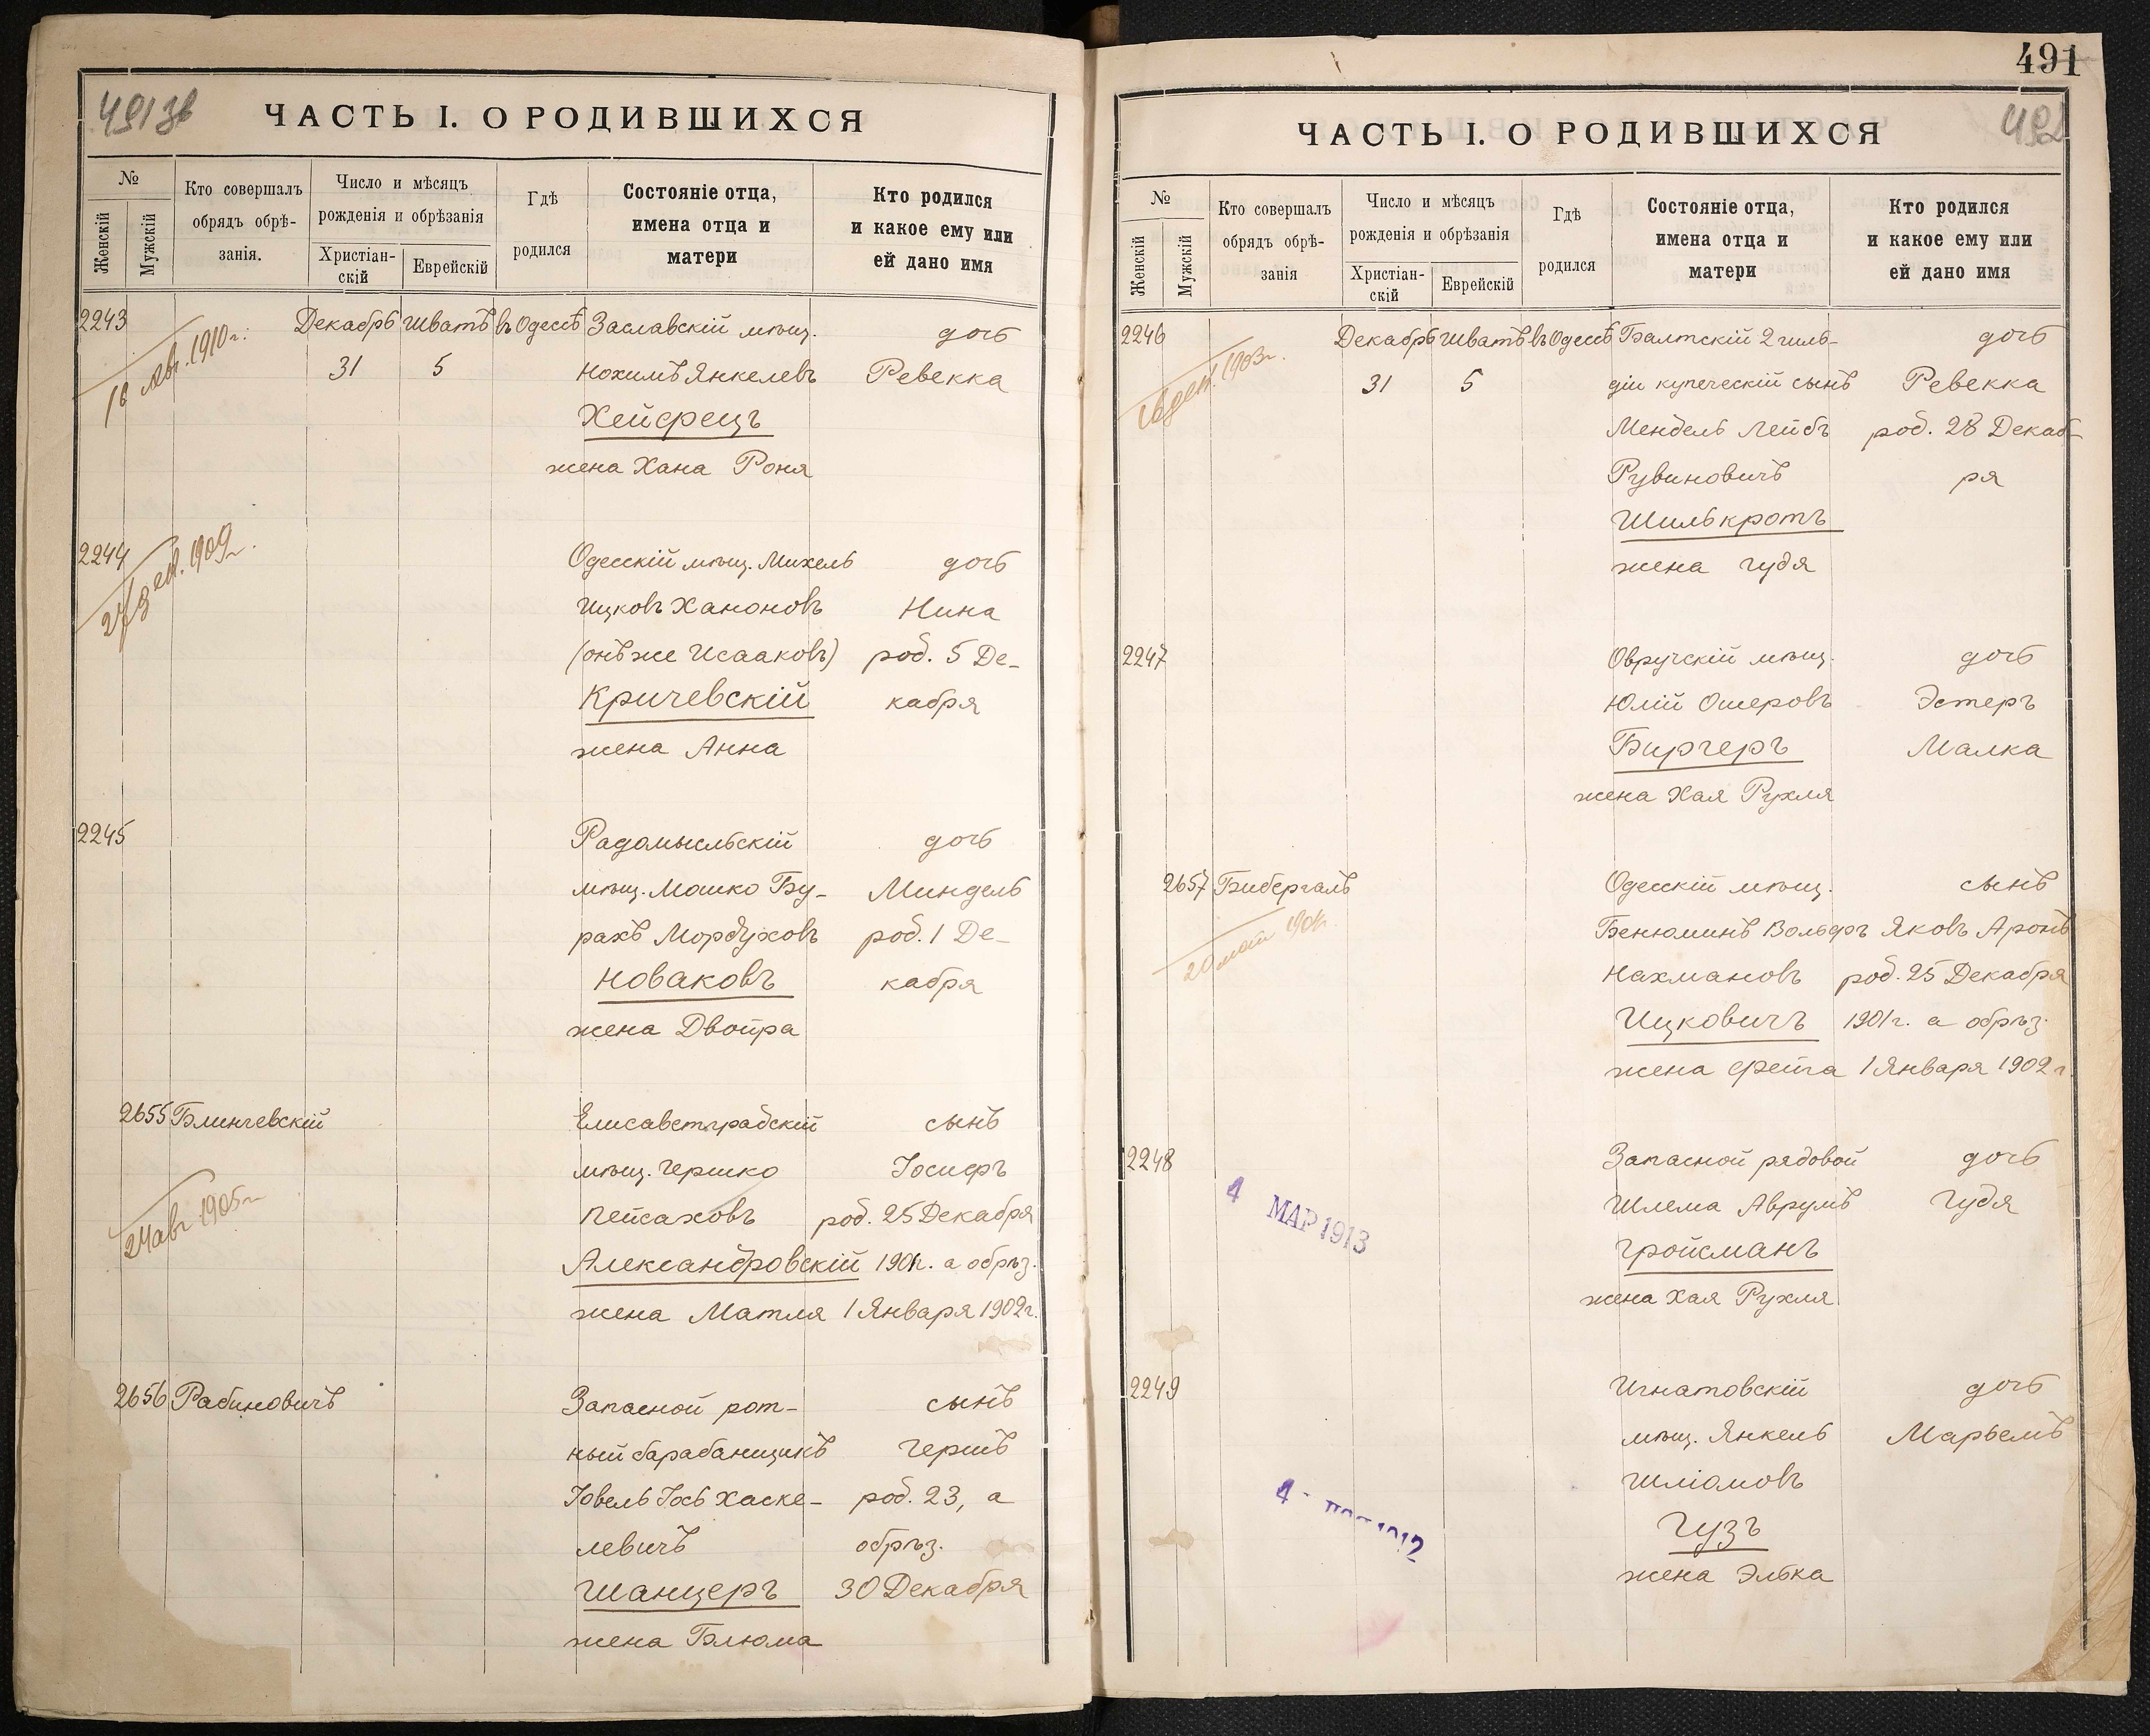 491 зв
ЧАСТЬ I. О РОДИВШИХСЯ
№
Женскій
Мужскій
Кто совершалъ
обрядъ обрѣ-
занія.
Число и мѣсяцъ
рожденія и обрѣзанія
Христіан-
скій
Еврейскій
Гдѣ
родился
Состояніе отца,
имена отца и
матери
Кто родился
и какое ему или
ей дано имя
2243 Декабрь Шватъ въ Одессѣ Заславскій мѣщ. дочь
18 1910 г.
31 5 Нохимъ Янкелевъ Ревекка
Хейфецъ
жена Хана Роня
2244 Одесскій мѣщ. Михель дочь
27 дек. 1909 г.
Ицковъ Ханоновъ Нина
(онъ же Исааковъ) род. 5 Де-
Кричевскій кабря
жена Анна
2245 Радомысльскій дочь
мѣщ. Мошко Бу- Миндель
рахъ Мордуховъ род. 1 Де-
Новаковъ кабря
жена Двойра
2655 Блинчевскій Елисаветградскій сынъ
мѣщ. Гершко Іосифъ
24 авг 1905 г
Пейсаховъ род. 25 Декабря
Александровскій 1901г. а обрѣз.
жена Матля 1 Января 1902г.
2656 Рабиновичъ Запасной рот- сынъ
ный барабанщикъ Гершъ
Іовель Іось Хаске- род. 23, а
левичъ обрѣз.
Шанцеръ 30 Декабря
жена Блюма
491
492
ЧАСТЬ I. О РОДИВШИХСЯ
№
Женскій
Мужскій
Кто совершалъ
обрядъ обрѣ-
занія
Число и мѣсяцъ
рожденія и обрѣзанія
Христіан-
скій
Еврейскій
Гдѣ
родился
Состояніе отца,
имена отца и
матери
Кто родился
и какое ему или
ей дано имя
2246 Декабрь Шватъ въ Одессѣ Балтскій 2 гиль- дочь
16 дек. 1903 г.
31 5 діи купеческій сынъ Ревекка
Мендель Лейбъ род. 28 Декаб-
Рувиновичъ ря
Шилькротъ
жена Гудя
2247 Овручскій мѣщ. дочь
Юлій Ошеровъ Эстеръ
Биргеръ Малка
жена Хая Рухля
2657 Бибергалъ Одесскій мѣщ. сынъ
20 мая
Бенюминъ Вольфъ Яковъ Аронъ
Нахмановъ род. 25 Декабря
Ицковичъ 1901г. а обрѣз.
жена Фейга 1 Января 1902 г
2248 Запасной рядовой дочь
4 МАР 1913
Шлема Аврумъ Гудя
Гройсманъ
жена Хая Рухля
2249 Игнатовскій дочь
мѣщ. Янкель Марьемъ
Шліомовъ
4 1912
Гузъ
жена Элька